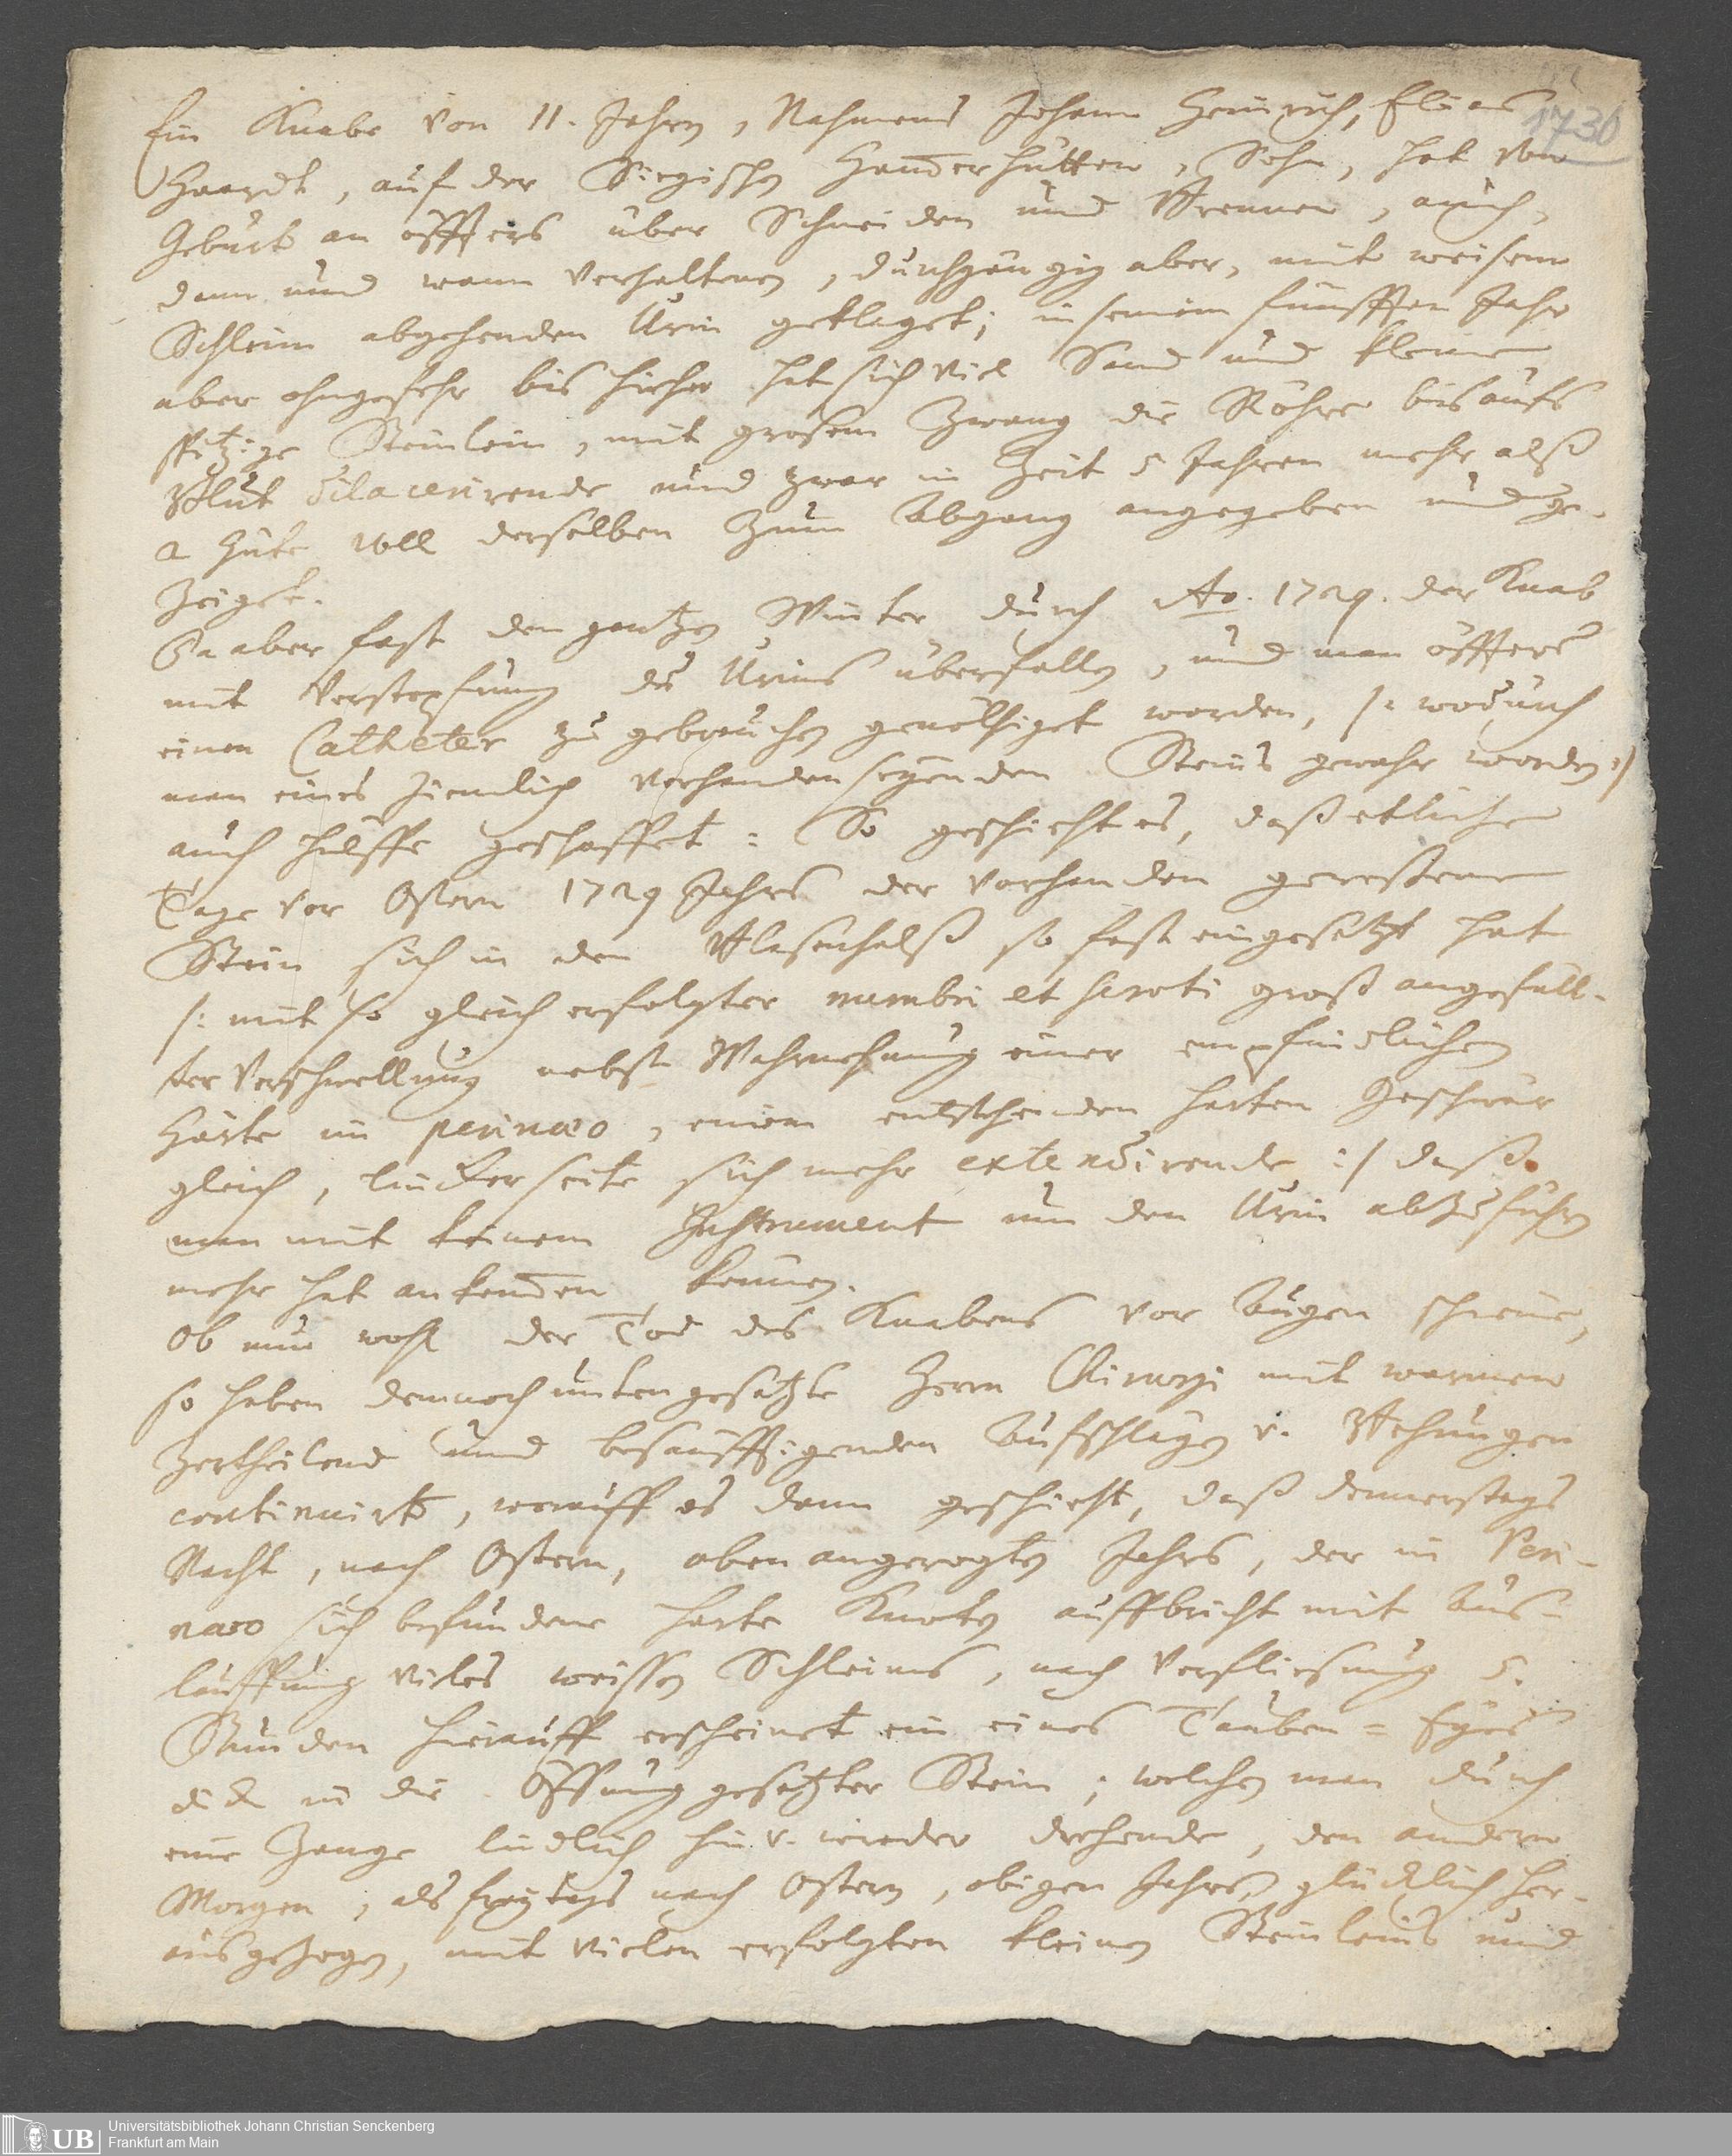 1730
Ein Knabe von 11. Jahren, Nahmens Johann Henrich, Elias
Haardt, auf der Siegischen Hammerhütten, Sohn, hat von
Geburt an öffters über Schneiden und Brennen, auch,
dann und wann verhaltenen, durchgängig aber, mit weisem
Schleim abgehenden Urin geklaget; in seinem fünfften Jahr
aber ohngefehr bis hieher hat sich viel Sand und kleine
spitzige Steinlein, mit grosem Zwang die Röhre bis aufs
Blut dilacerirende und zwar in Zeit 5 Jahren mehr alß
a Hüte voll derselben zum Abgang angegeben und ge-
zeiget.
Da aber fast den gantzen Winter durch Ao. 1729. der Knab
mit Verstopfung des Urins überfallen, und man öffters
einen Catheter zu gebrauchen genöthiget worden, /: wodurch
man eines ziemlich vorhanden seyenden Steins gewahr worden :/
auch hülffe geschaffet: So geschieht es, daß etliche
Tage vor Ostern 1729 Jahrs der vorhanden gewesene
Stein sich in den Blasenhalß so fest eingesetzt hat
/: mit so gleich erfolgter membri et scroti groß angefüll-
ter Verschwellung nebst Wahrnehmung einer empfindlichen
Härte im perinaeo, einem entstehenden harten Geschwär
gleich, lincker seite sich mehr extendirende :/ daß
man mit keinem Instrument um den Urin abzuführen
mehr hat ankommen können.
Ob nun wohl der Tod des Knabens vor Augen schiene,
so haben dennoch untengesetzte Herrn Chirurgi mit warmen
zertheilend und besänfftigenden Aufschlägen u. Bähungen
continuirt, worauff es dann geschieht, daß donnerstags
Nacht, nach Ostern, oben angeregten Jahrs, der in Peri-
naeo sich befundene harte Knoten auffbricht mit Aus-
lauffung vieles weissen Schleims, nach Verfliesung 5.
Stunden hierauff erscheinet ein eines Tauben = Eyes
dick in die Öffnung gesetzter Stein; welchen man durch
eine Zange lindlich hin u. wieder drehende, den andern
Morgen, als freytags nach Ostern, obigen Jahrs, glücklich her-
ausgezogen, mit vielen erfolgten kleinen Steinleins und
UB
Universitätsbibliothek Johann Christian Senckenberg
Frankfurt am Main